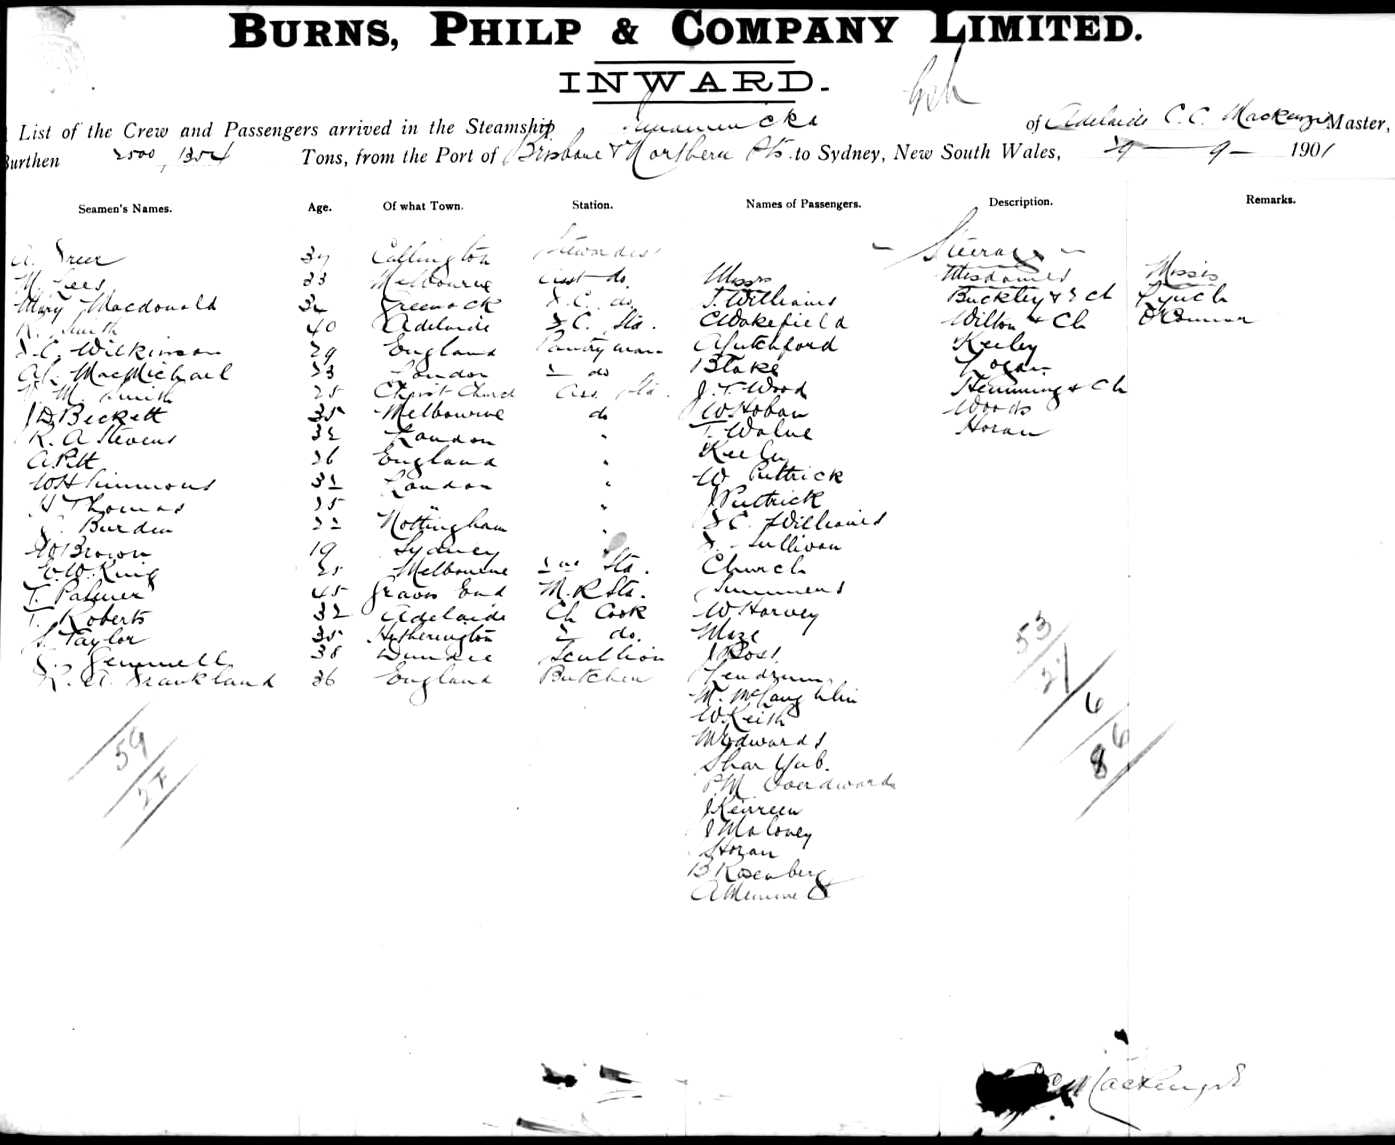 BURNS, PHILP & COMPANY LIMITED.
INWARD.
List of the Crew and Passengers arrived in the Steamship of Adelaide C. C. Mackenzie Master,
Burthen 2500, 1354 Tons, from the Port of Brisbane & Northern Pts. to Sydney, New South Wales, 29 — 9 — 1901
Seamen's Names. Age. Of what Town. Station. Names of Passengers. Description. Remarks.
Stewardess — Steerage —
A. Greer 37 Callington
M. Lees 33 Melbourne asst do. Messrs Mesdames Misses
Mary Macdonald 32 Greenock do. J. Williams Buckley & Ch Lynch
Smith 40 Adelaide S.C. Sta. C Wakefield Wilton & Ch O'Connor
C. Wilkinson 29 England Pantryman A Hutchford Keeley
MacMichael 23 London 2 do Blake Logan
M. Smith 25 Christ Church Ass. Sta. J. T. Wood Hemming & Ch
J D Beckett 35 Melbourne do W Hoban Woods
R. A Stevens 32 London " T. Walne Horan
A Pitt 26 England " Keeley
W H Simmons 32 London " W Puttrick
Thomas 25 " " J Puttrick
Burden 22 Nottingham " C. Williams
W Brown 19 Sydney Sullivan
E. W. King 25 Melbourne Sta. Church
T. Palmer 45 Graves End M. R Sta. Simmons
T. Roberts 32 Adelaide Ch Cook W Harvey
S. Taylor 35 Hetherington 2 do. Maze
J. Gemmell 38 Dundee Scullion J Ross
R. A. Frankland 26 England Butcher Lendrum
M. McLaughlin
W Keith
M Edwards
Shar Yub.
P. M.
J Kenreen
J Maloney
Horan
B Rosenberg
A
59
27
53
27
6
86
C C Mackenzie